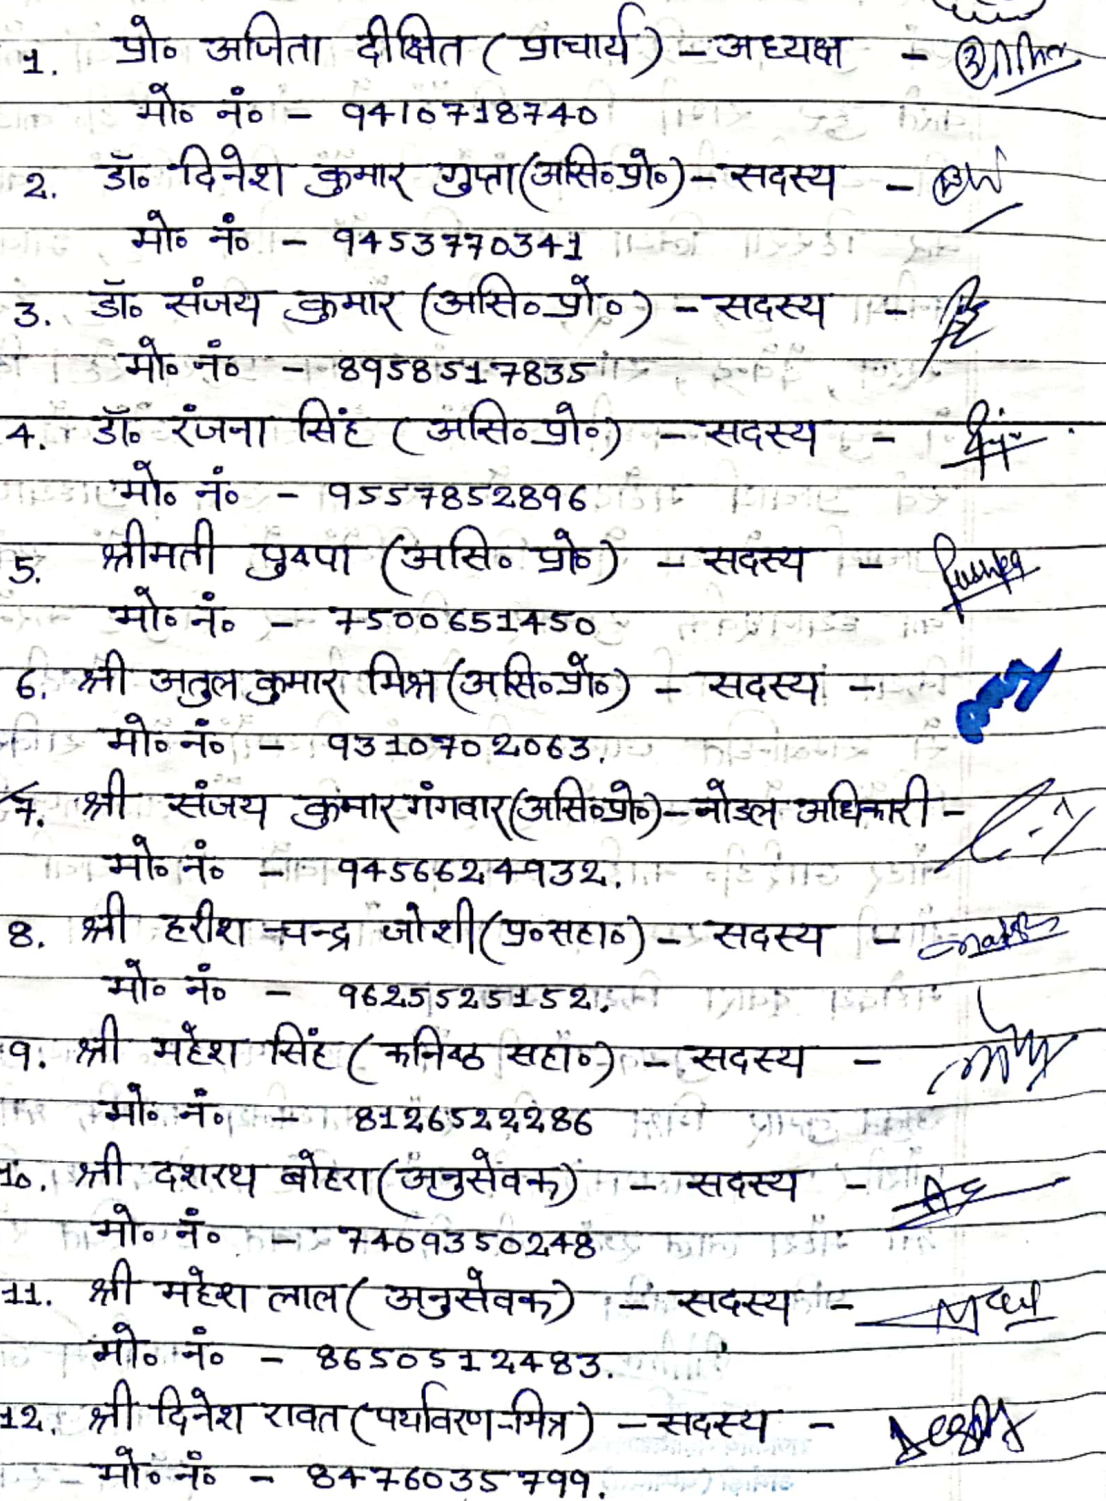 1. प्रो० अजिता दीक्षित ( प्राचार्य ) – अध्यक्ष –
मो० नं० – 9410718740
2. डॉ० दिनेश कुमार गुप्ता (असि० प्रो०) – सदस्य –
मो० नं० – 9453770341
3. डॉ० संजय कुमार (असि० प्रो०) – सदस्य –
मो० नं० – 8958517835
4. डॉ० रंजना सिंह ( असि० प्रो०) – सदस्य –
मो० नं० – 9557852896
5. श्रीमती पुष्पा (असि० प्रो०) – सदस्य – Pushpa
मो० नं० – 7500651450
6. श्री अतुल कुमार मिश्र (असि० प्रो०) – सदस्य –
मो० नं० – 9310702063.
7. श्री संजय कुमार गंगवार (असि० प्रो०) – नोडल अधिकारी –
मो० नं० – 9456624932.
8. श्री हरीश चन्द्र जोशी (प्र० सहा०) – सदस्य –
मो० नं० – 9625525152.
9. श्री महेश सिंह ( कनिष्ठ सहा०) – सदस्य –
मो० नं० – 8126522286
10. श्री दशरथ बोहरा (अनुसेवक) – सदस्य –
मो० नं० – 7409350248
11. श्री महेश लाल ( अनुसेवक) – सदस्य –
मो० नं० – 8650512483.
12. श्री दिनेश रावत (पर्यावरण-मित्र) – सदस्य –
मो० नं० – 8476035799.